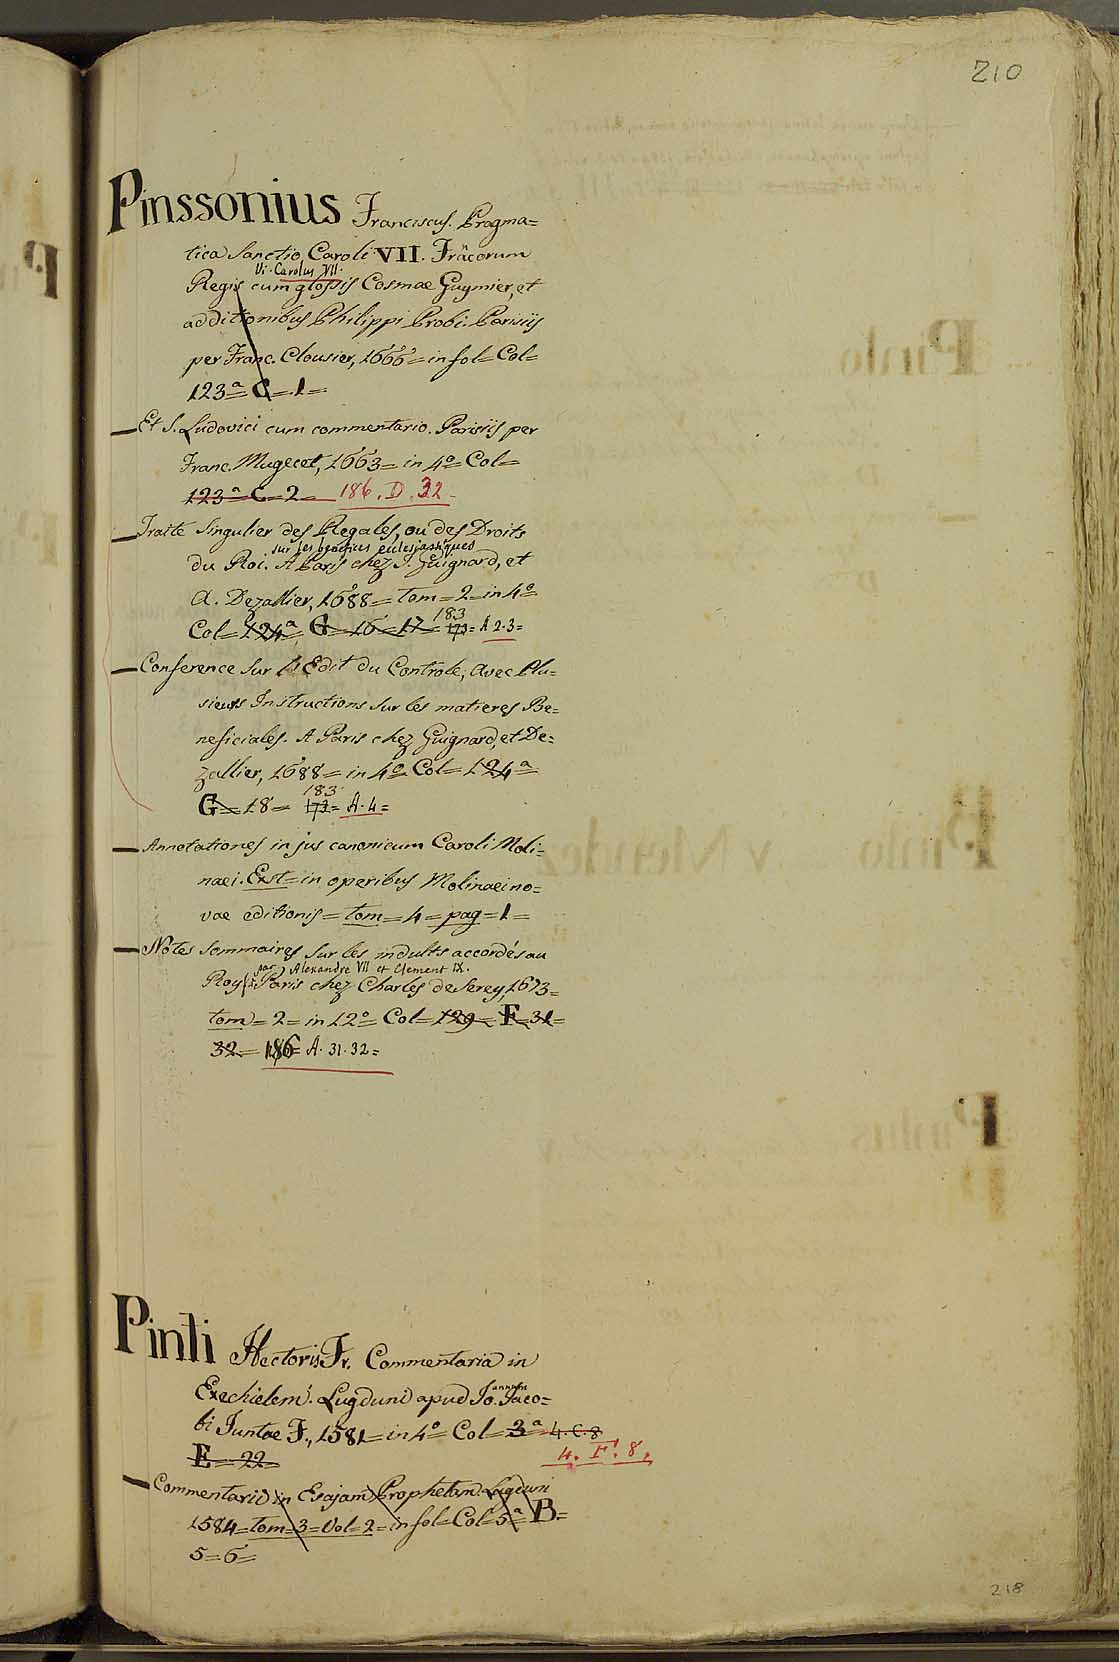 210
Pinssonius Franciscus. Pragma=
tica Sanctio Caroli VII. Frãcorum
Vi. Carolus VII.
Regis cum glossis Cosmae Guymier, et
additionibus Philippi Probi. Parisiis
per Franc. Clousier, 1666= in fol= Col=
123ᵃ= C=1=
— Et S. Ludovici cum commentario. Parisiis per
Franc. Muguet, 1663= in 4º= Col=
123ᵃ C=2= 186. D. 32
— Traité Singulier des Regales, ou des Droits
sur les benefices eclesiastiques
du Roi. A Paris chez J. Guignard, et
A. Dezallier, 1688= tom=2= in 4º=
183
Col= 124ᵃ= G=16=17= 173= A 2·3=
— Conference sur l'Edit du Controle, avec Plu=
sieurs Instructions sur les matieres Be=
neficiales. A Paris chez Guignard, et De=
zallier, 1688= in 4º= Col= 124ᵃ=
183
G=18= 173= A·4=
— Annotationes in jus canonicum Caroli Moli=
naei. Exst= in operibus Molinaei no=
vae editionis= tom=4= pag=1=
— Notes sommaires sur les indults accordés au
par Alexandre VII et Clement IX.
Roy Paris chez Charles de Serey, 1673=
tom=2= in 12º= Col= 129= F=31=
32= 186= A·31·32=
Pinti Hectoris Fr. Commentaria in
Ezechielem. Lugduni apud Jo. Jaco=
annem
bi Juntae F., 1581= in 4º Col= 3ᵃ= 4.C.8
E=22= 4. F. 8.
— Commentaria in Esajam Prophetam. Lugduni
1584= tom=3= Vol=2= in fol= Col= 5ᵃ= B.=
5=6=
218